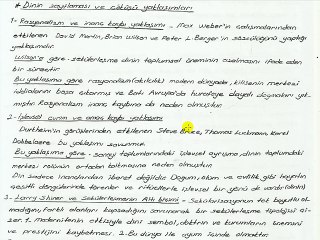 * Dinin zayıflaması ve çöküşü yaklaşımları
1- Rasyonalizm ve inanç kaybı yaklaşımı - Max Weber'in çalışmalarından
etkilenen David Martin, Brian Wilson ve Peter L. Berger'in sözcülüğünü yaptığı
yaklaşımdır.
Wilson'a göre sekülerleşme dinin toplumsal öneminin azalmasını ifade eden
bir süreçtir.
Bu yaklaşıma göre rasyonalizm (akılcılık) modern dünyada, kilisenin merkezi
iddialarını başa çıkarmış ve Batı Avrupa'da hurafeye dayalı dogmaları yık-
mıştır. Rasyonalizm inanç kaybına da neden olmuştur.
2- İşlevsel kuram ve amaç kaybı yaklaşımı
Durkheim'in görüşlerinden etkilenen Steve Bruce, Thomas Luckmann, Karel
Dobbelaere bu yaklaşımı savunmuş.
Bu yaklaşıma göre - sanayi toplumlarındaki işlevsel ayrışma, dinin toplumdaki
merkezi rolünün ortadan kalkmasına neden olmuştur.
Din sadece inananlardan ibaret değildir. Doğum, ölüm ve evlilik gibi hayatın
çeşitli döngülerinde törenler ve ritüellerle işlevsel bir yönü de vardır.
3- Larry Shiner ve Sekülerleşmenin Altı Tipi - Sekülarizasyonun tek boyutlu ol-
madığını, farklı alanları kapsadığını savunarak bir sekülerleşme tipolojisi
1. Modernitenin etkisiyle dini sembol, doktrin ve kurumların önemini
ve prestijini kaybetmesi, 2. Bu dünya ile uyum içinde olmaktır